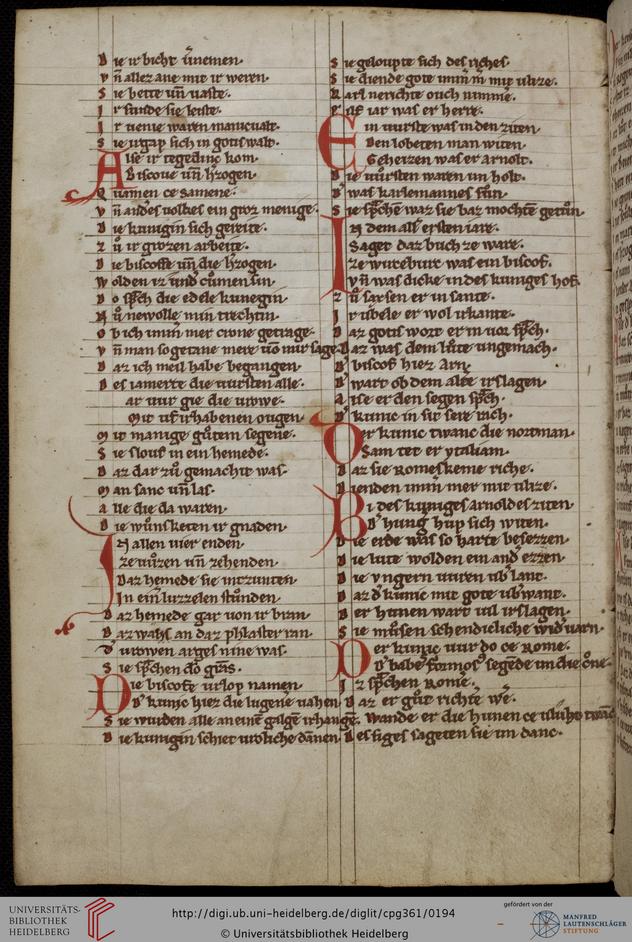 Die ir bicht v̄nemen·
vn̄ allez ane mit ir weren·
Sie bette vn̄ vaste·
Ir sunde sie leiste·
Ir venie waren manicualt·
Sie irgap sich in gotis walt·
Alse ir tegedinc kom·
Bischove vn̄ h̓zogen·
Quamen ce samene·
vn̄ andes volkes ein groz menige·
Die kunigin sich gereite·
zů ir grozen arbeite·
Die bischoffe vn̄ die h̓zogen·
Wolden iz under cůmen un
Do sp̄ch die edele kunegin
Nů newolle min trechtin·
Ob ich imm̓ mer crone getrage·
vn̄ man so getane mere vō mir sage·
Daz ich meil habe begangen·
Des iamerte die vursten alle·
ar vur gie die urowe·
Mit uf irhabenen ougen·
Mit manige gůtem segene·
Sie slouf in ein hemede·
Daz dar zů gemachit was·
Man sanc vn̄ las·
alle die da waren·
Die wůnsketen ir gnaden·
In allen vier enden·
ze vůzen vn̄ zehenden·
Daz hemede sie intzunten·
In ein̄ lutzzelen stůnden·
Daz hemede gar von ir bran·
Daz wahs an daz phlaster ran·
d̓ vrowen arges nine was·
Sie sp̄chen dō gr̄as·
Die biscofe urlop namen·
D̓ kunic hiez die lugene vahen
Sie wurden alle an einē galgē irhangē·
Die kunigin schiet vroliche dānen·
Sie geloupte sich des riches·
Sie diende gote imm̓ m̓ mit vlize·
Karl nerichte ouch nimme·
er ilf iar was er herre·
Ein vurste was in den ziten
Den lobeten man witen
Geheizen was er arnolt·
Die vůrsten waren im holt·
D̓ was karlemannes sun·
Sie sp̄chē waz sie baz mochtē getůn·
In dem all̓ ersten iare·
Saget daz buch ze ware·
Ze wirceburc was ein biscof·
vn̄ was dicke in des kuniges hof·
zů sarfen er in sante·
Ir ubele er wol irkante·
Daz gotis wort er in vor sp̄ch·
Daz was dem lůte ungemach·
D̓ biscof hiez Arn·
D̓ wart ob dem alt̓e irslagen·
Alse er den segen sp̄ch·
D̓ kunic in sit sere rich·
Der kunic twanc die norman·
Sam tet er ytaliam·
Daz sie Romeskeme riche·
Dienden imm̓ mer mit vlize·
Bi des kuniges arnoldes ziten
D̓ hung̓ hup sich witen·
Die erde was so harte besezzen·
Die lute wolden ein and̓ ezzen·
Die vngern vuren ub̓ lant·
Daz d̓ kunic mit gote ub̓want·
Der hunen wart vil irslagen·
Sie můsen schendicliche wid̓ varn·
Der kunic vur do ce Rome·
D̓ babes formos̓ segēde im die c̊ne·
Iz sp̄chen Rome·
Daz er gůt richt̓e w̄e·
Wande er die hunen ce vluht twāc
Des siges sageten sie im danc·
UNIVERSITÄTS-
BIBLIOTHEK
HEIDELBERG
http://digi.ub.uni-heidelberg.de/diglit/cpg361/0194
© Universitätsbibliothek Heidelberg
gefördert von der
MANFRED
LAUTENSCHLÄGER
STIFTUNG